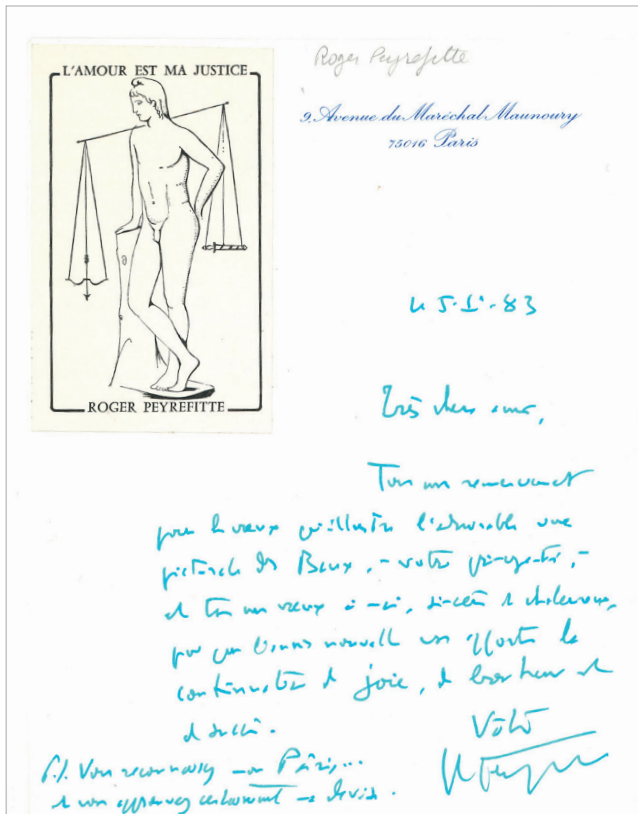 L'AMOUR EST MA JUSTICE
ROGER PEYREFITTE
Roger Peyrefitte
9, Avenue du Maréchal Maunoury
75016 Paris
le 5-1er-83
Très chers amis,
Tous mes remerciements
pour les vœux qu'illustre l'admirable vue
picturale des Baux, - votre
et tous mes vœux à moi, sincères et chaleureux,
pour que l'année nouvelle vous apporte la
continuation de joie, de bonheur et
de succès.
Votre
P.S. Vous reconnaissez mon Pâris...
et vous approuvez certainement ma devise.